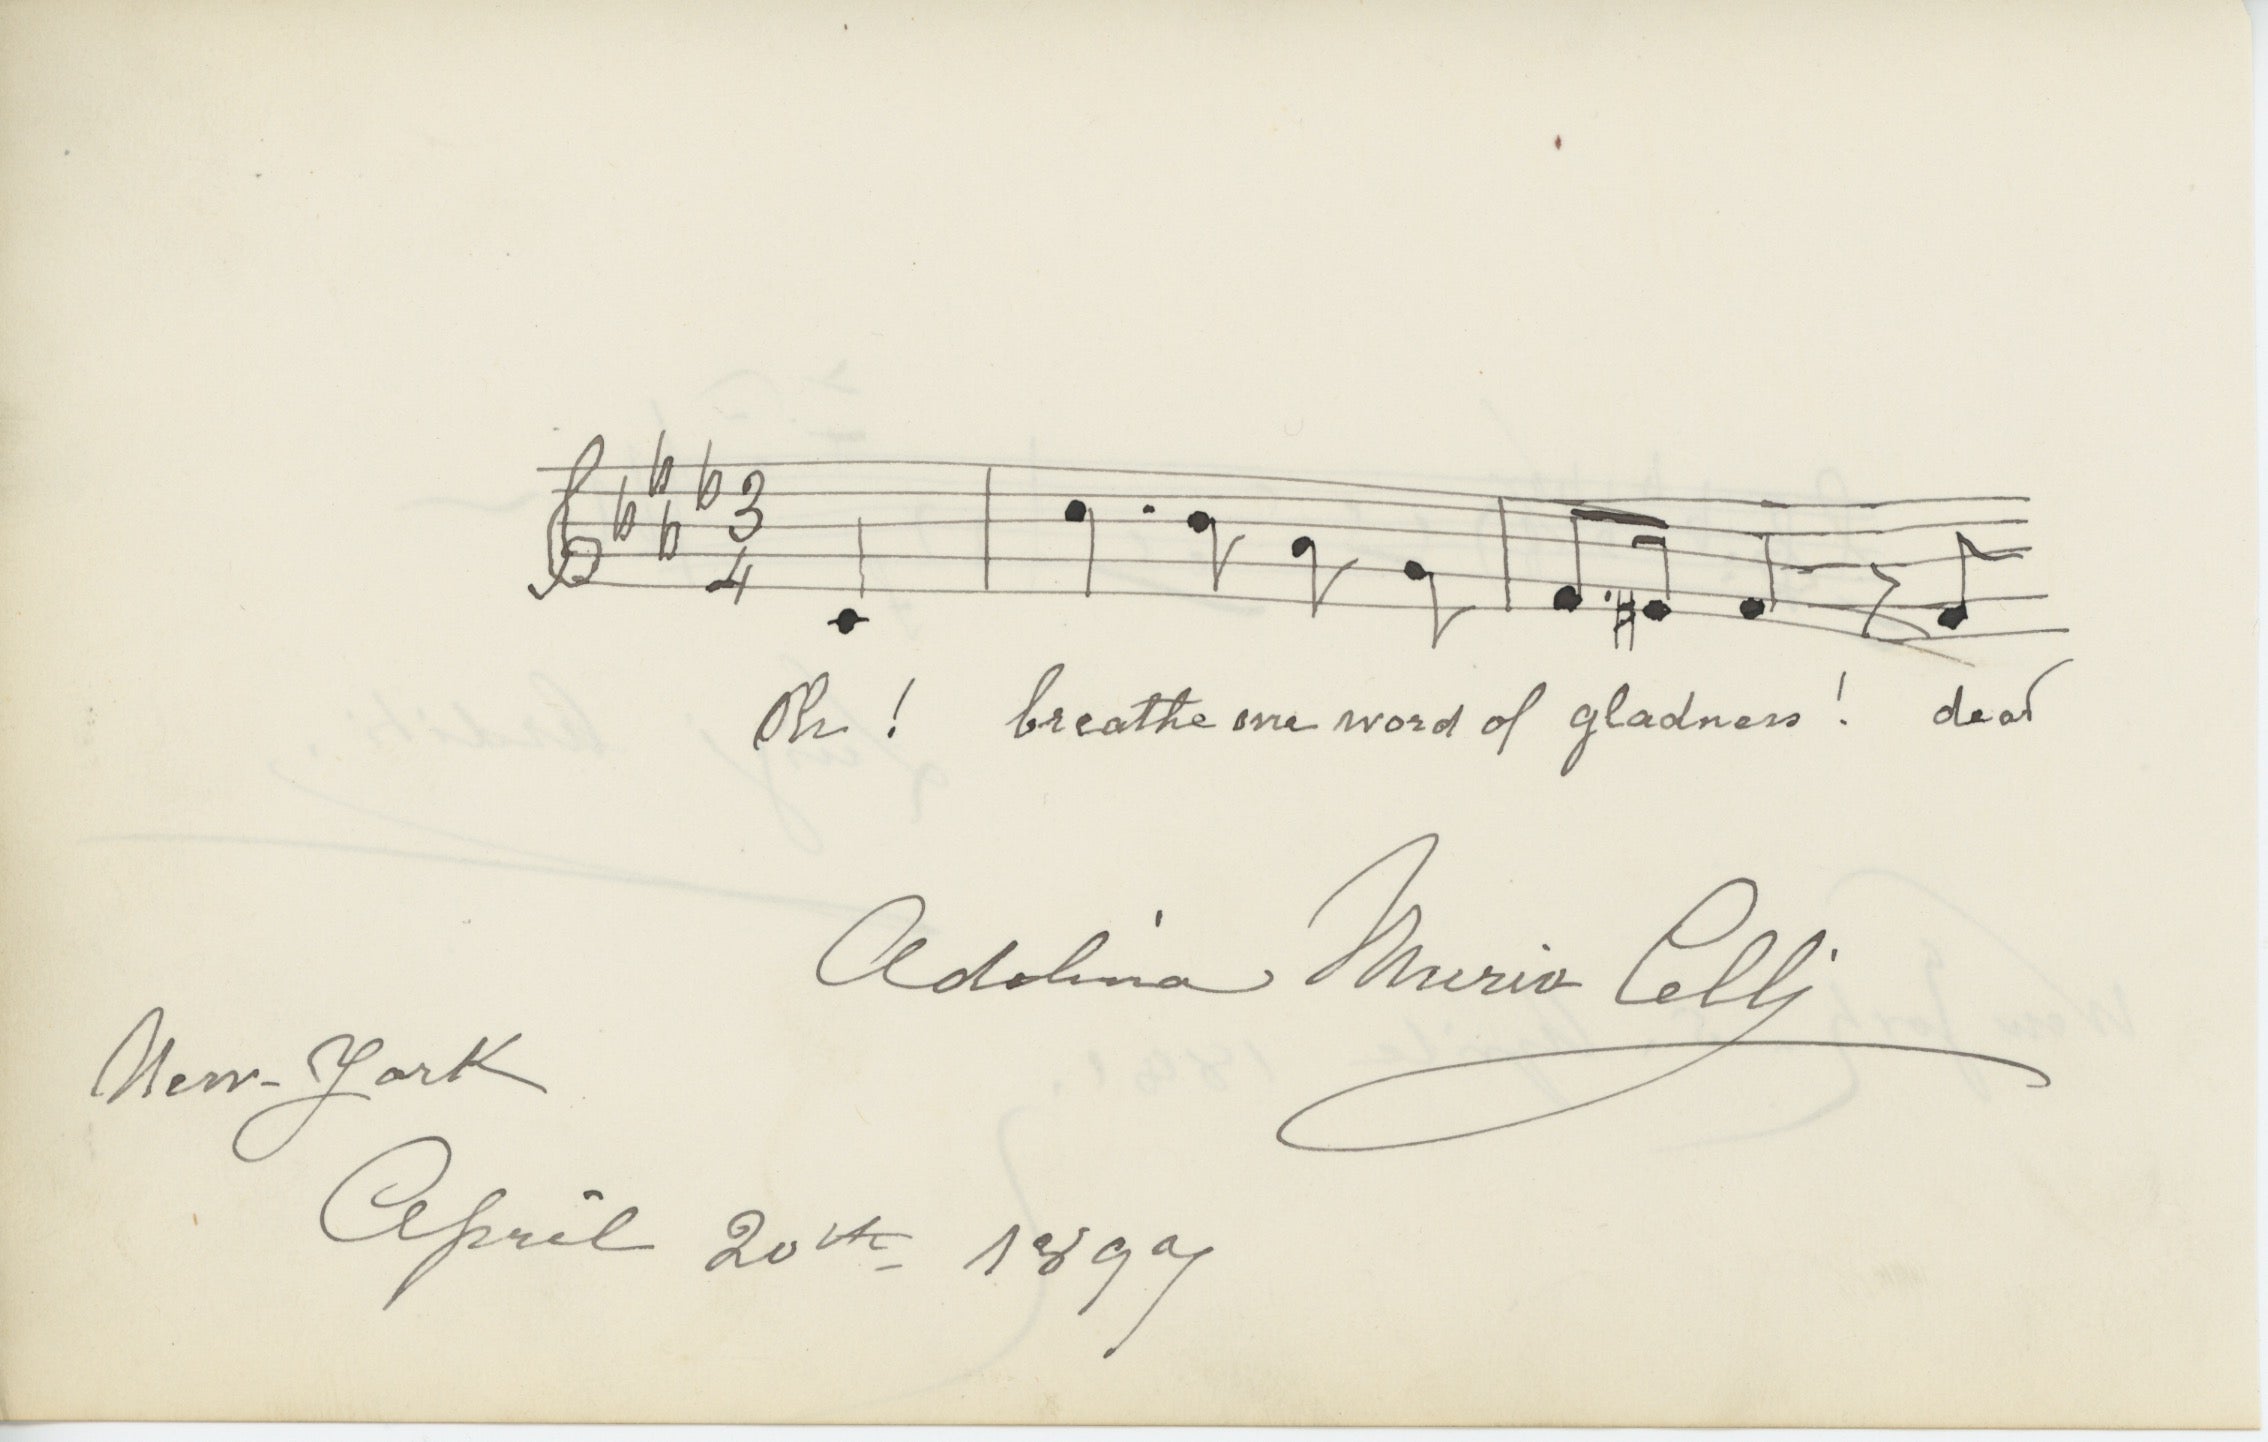 3
4
Oh! breathe one word of gladness! dear
Adelina Murio Celli
New-York
April 20th 1897